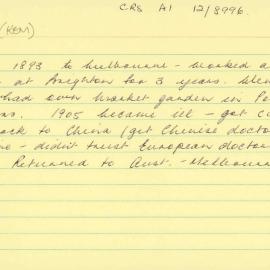 CRS A1 12/8996.
(KEM)
1893 to Melbourne - worked a
at Brighton for 3 years. 
had own market garden in Pe
1905 became ill - got c
ack to China (get Chinese docto
- didn't trust European docto
Returned to Aust. - Melbourn